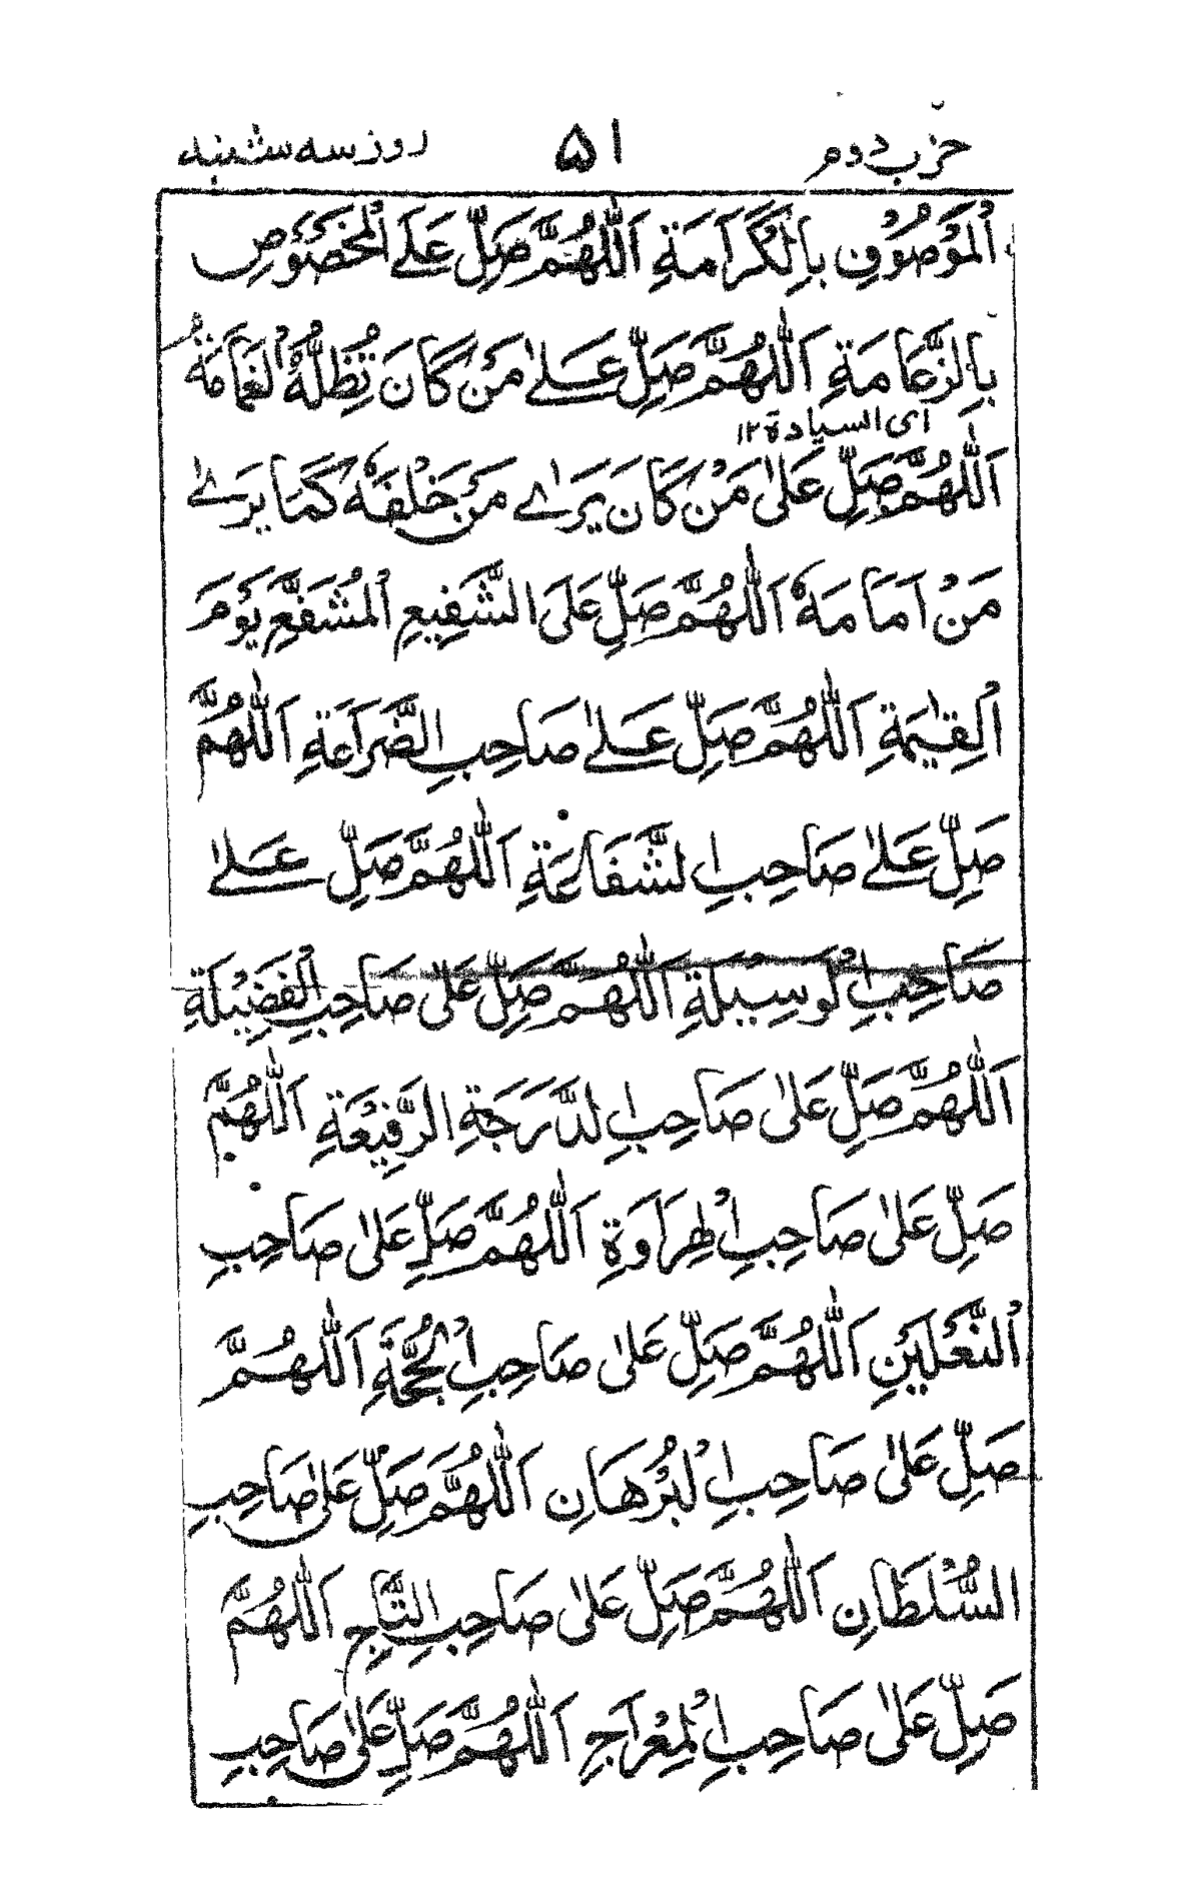 حزب دوم ۵۱ روز سه شنبه
اَلْمَوْصُوْفِ بِالْكَرَامَةِ اَللّٰهُمَّ صَلِّ عَلَى الْمَخْصُوْصِ
بِالزَّعَامَةِ اَللّٰهُمَّ صَلِّ عَلٰى مَنْ كَانَ تُظِلُّهُ الْغَمَامَةُ
اى السيادة ١٢
اَللّٰهُمَّ صَلِّ عَلٰى مَنْ كَانَ يَرٰى مَنْ خَلْفَهٗ كَمَا يَرٰى
مَنْ اَمَامَهٗ اَللّٰهُمَّ صَلِّ عَلَى الشَّفِيعِ الْمُشَفَّعِ يَوْمَ
الْقِيٰمَةِ اَللّٰهُمَّ صَلِّ عَلٰى صَاحِبِ الضَّرَاعَةِ اَللّٰهُمَّ
صَلِّ عَلٰى صَاحِبِ الشَّفَاعَةِ اَللّٰهُمَّ صَلِّ عَلٰى
صَاحِبِ الْوَسِيْلَةِ اَللّٰهُمَّ صَلِّ عَلٰى صَاحِبِ الْفَضِيْلَةِ
اَللّٰهُمَّ صَلِّ عَلٰى صَاحِبِ الدَّرَجَةِ الرَّفِيْعَةِ اَللّٰهُمَّ
صَلِّ عَلٰى صَاحِبِ الْهِرَاوَةِ اَللّٰهُمَّ صَلِّ عَلٰى صَاحِبِ
النَّعْلَيْنِ اَللّٰهُمَّ صَلِّ عَلٰى صَاحِبِ الْحُجَّةِ اَللّٰهُمَّ
صَلِّ عَلٰى صَاحِبِ الْبُرْهَانِ اَللّٰهُمَّ صَلِّ عَلٰى صَاحِبِ
السُّلْطَانِ اَللّٰهُمَّ صَلِّ عَلٰى صَاحِبِ التَّاجِ اَللّٰهُمَّ
صَلِّ عَلٰى صَاحِبِ الْمِعْرَاجِ اَللّٰهُمَّ صَلِّ عَلٰى صَاحِبِ